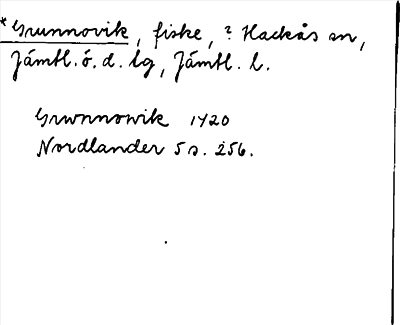 *Grunnovik, fiske, ? Hackås sn,
Jämtl. ö. d. lg, Jämtl. l.
Grwnnowik 1420
Nordlander 5 s. 256.